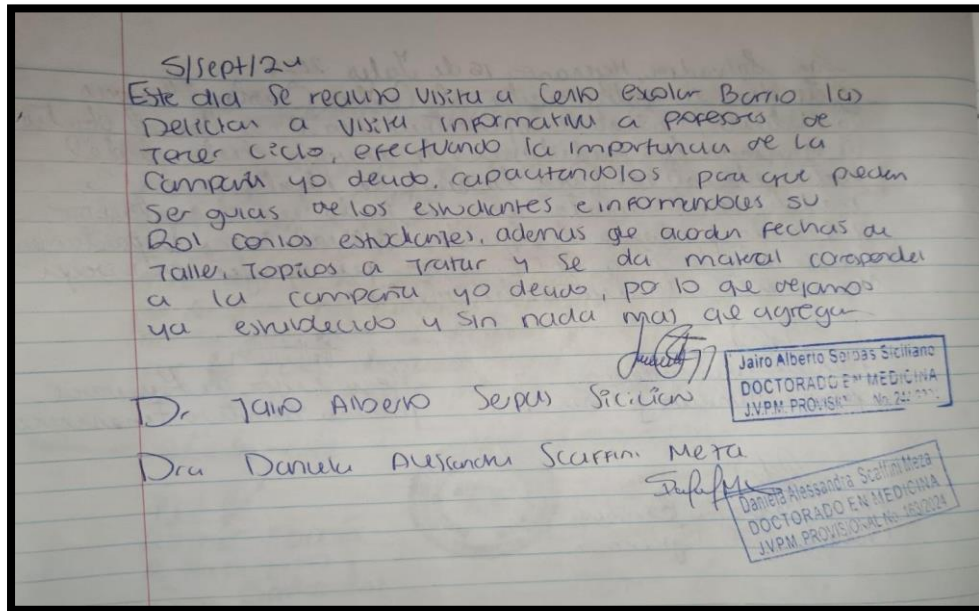 5/sept/24
Este dia se realizo visita a Centro escolar Barrio las
Delicias a visita informativa a profesores de
Tercer Ciclo, efectuando la importancia de la
Campaña yo decido, capacitandolos para que puedan
Ser guias de los estudiantes e informandoles su
Rol con los estudiantes, ademas que acordan fechas de
Taller, Topicos a Tratar y se da material corresponder
a la campaña yo decido, por lo que dejamos
ya establecido y sin nada mas que agregar
Jairo Alberto Serpas Siciliano
DOCTORADO EN MEDICINA
J.V.P.M. PROVISIONAL No.
Dr Jairo Alberto Serpas Siciliano
Dra Daniela Alessandra Scaffini Meza
Daniela Alessandra Scaffini Meza
DOCTORADO EN MEDICINA
J.V.P.M. PROVISIONAL No. 163/2024